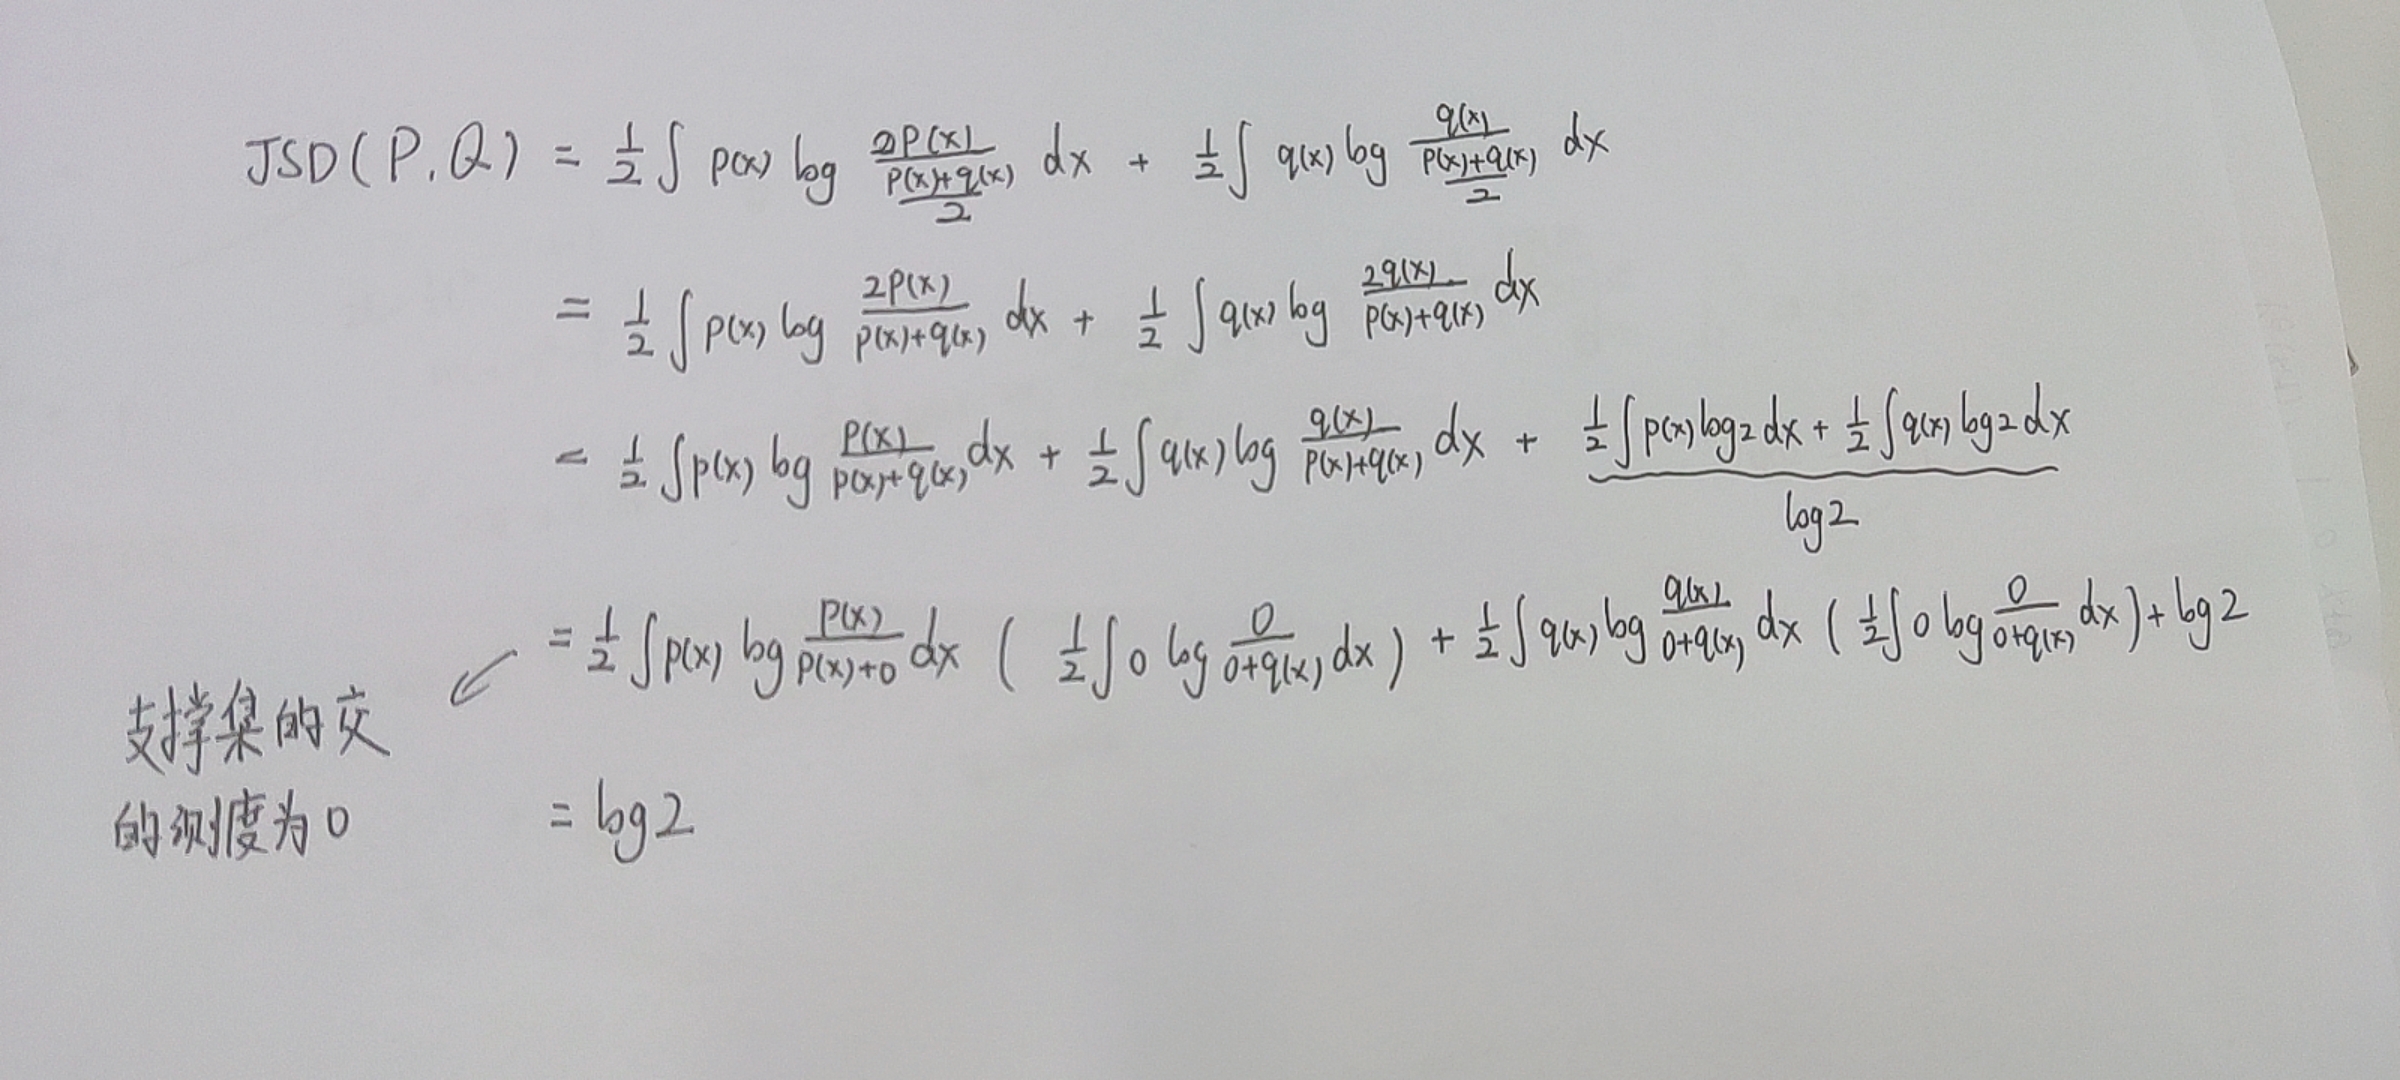 JSD(P,Q) = \frac{1}{2} ∫ p(x) log \frac{2P(x)}{\frac{P(x)+q(x)}{2}} dx + \frac{1}{2} ∫ q(x) log \frac{q(x)}{\frac{P(x)+q(x)}{2}} dx
= \frac{1}{2} ∫ p(x) log \frac{2P(x)}{p(x)+q(x)} dx + \frac{1}{2} ∫ q(x) log \frac{2q(x)}{p(x)+q(x)} dx
= \frac{1}{2} ∫ p(x) log \frac{P(x)}{p(x)+q(x)} dx + \frac{1}{2} ∫ q(x) log \frac{q(x)}{p(x)+q(x)} dx + \frac{1}{2} ∫ p(x) log2 dx + \frac{1}{2} ∫ q(x) log2 dx
log2
= \frac{1}{2} ∫ p(x) log \frac{P(x)}{P(x)+0} dx ( \frac{1}{2} ∫ 0 log \frac{0}{0+q(x)} dx ) + \frac{1}{2} ∫ q(x) log \frac{q(x)}{0+q(x)} dx ( \frac{1}{2} ∫ 0 log \frac{0}{0+q(x)} dx ) + log2
支撑集的交
的测度为0
= log2